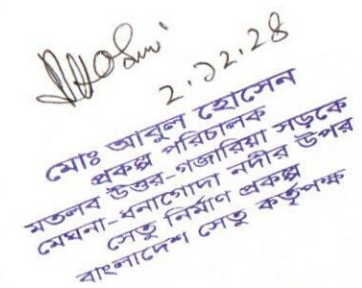 ২.১২.২৪
মোঃ আবুল হোসেন
প্রকল্প পরিচালক
মতলব উত্তর-গজারিয়া সড়কে
মেঘনা-ধনাগোদা নদীর উপর
সেতু নির্মাণ প্রকল্প
বাংলাদেশ সেতু কর্তৃপক্ষ